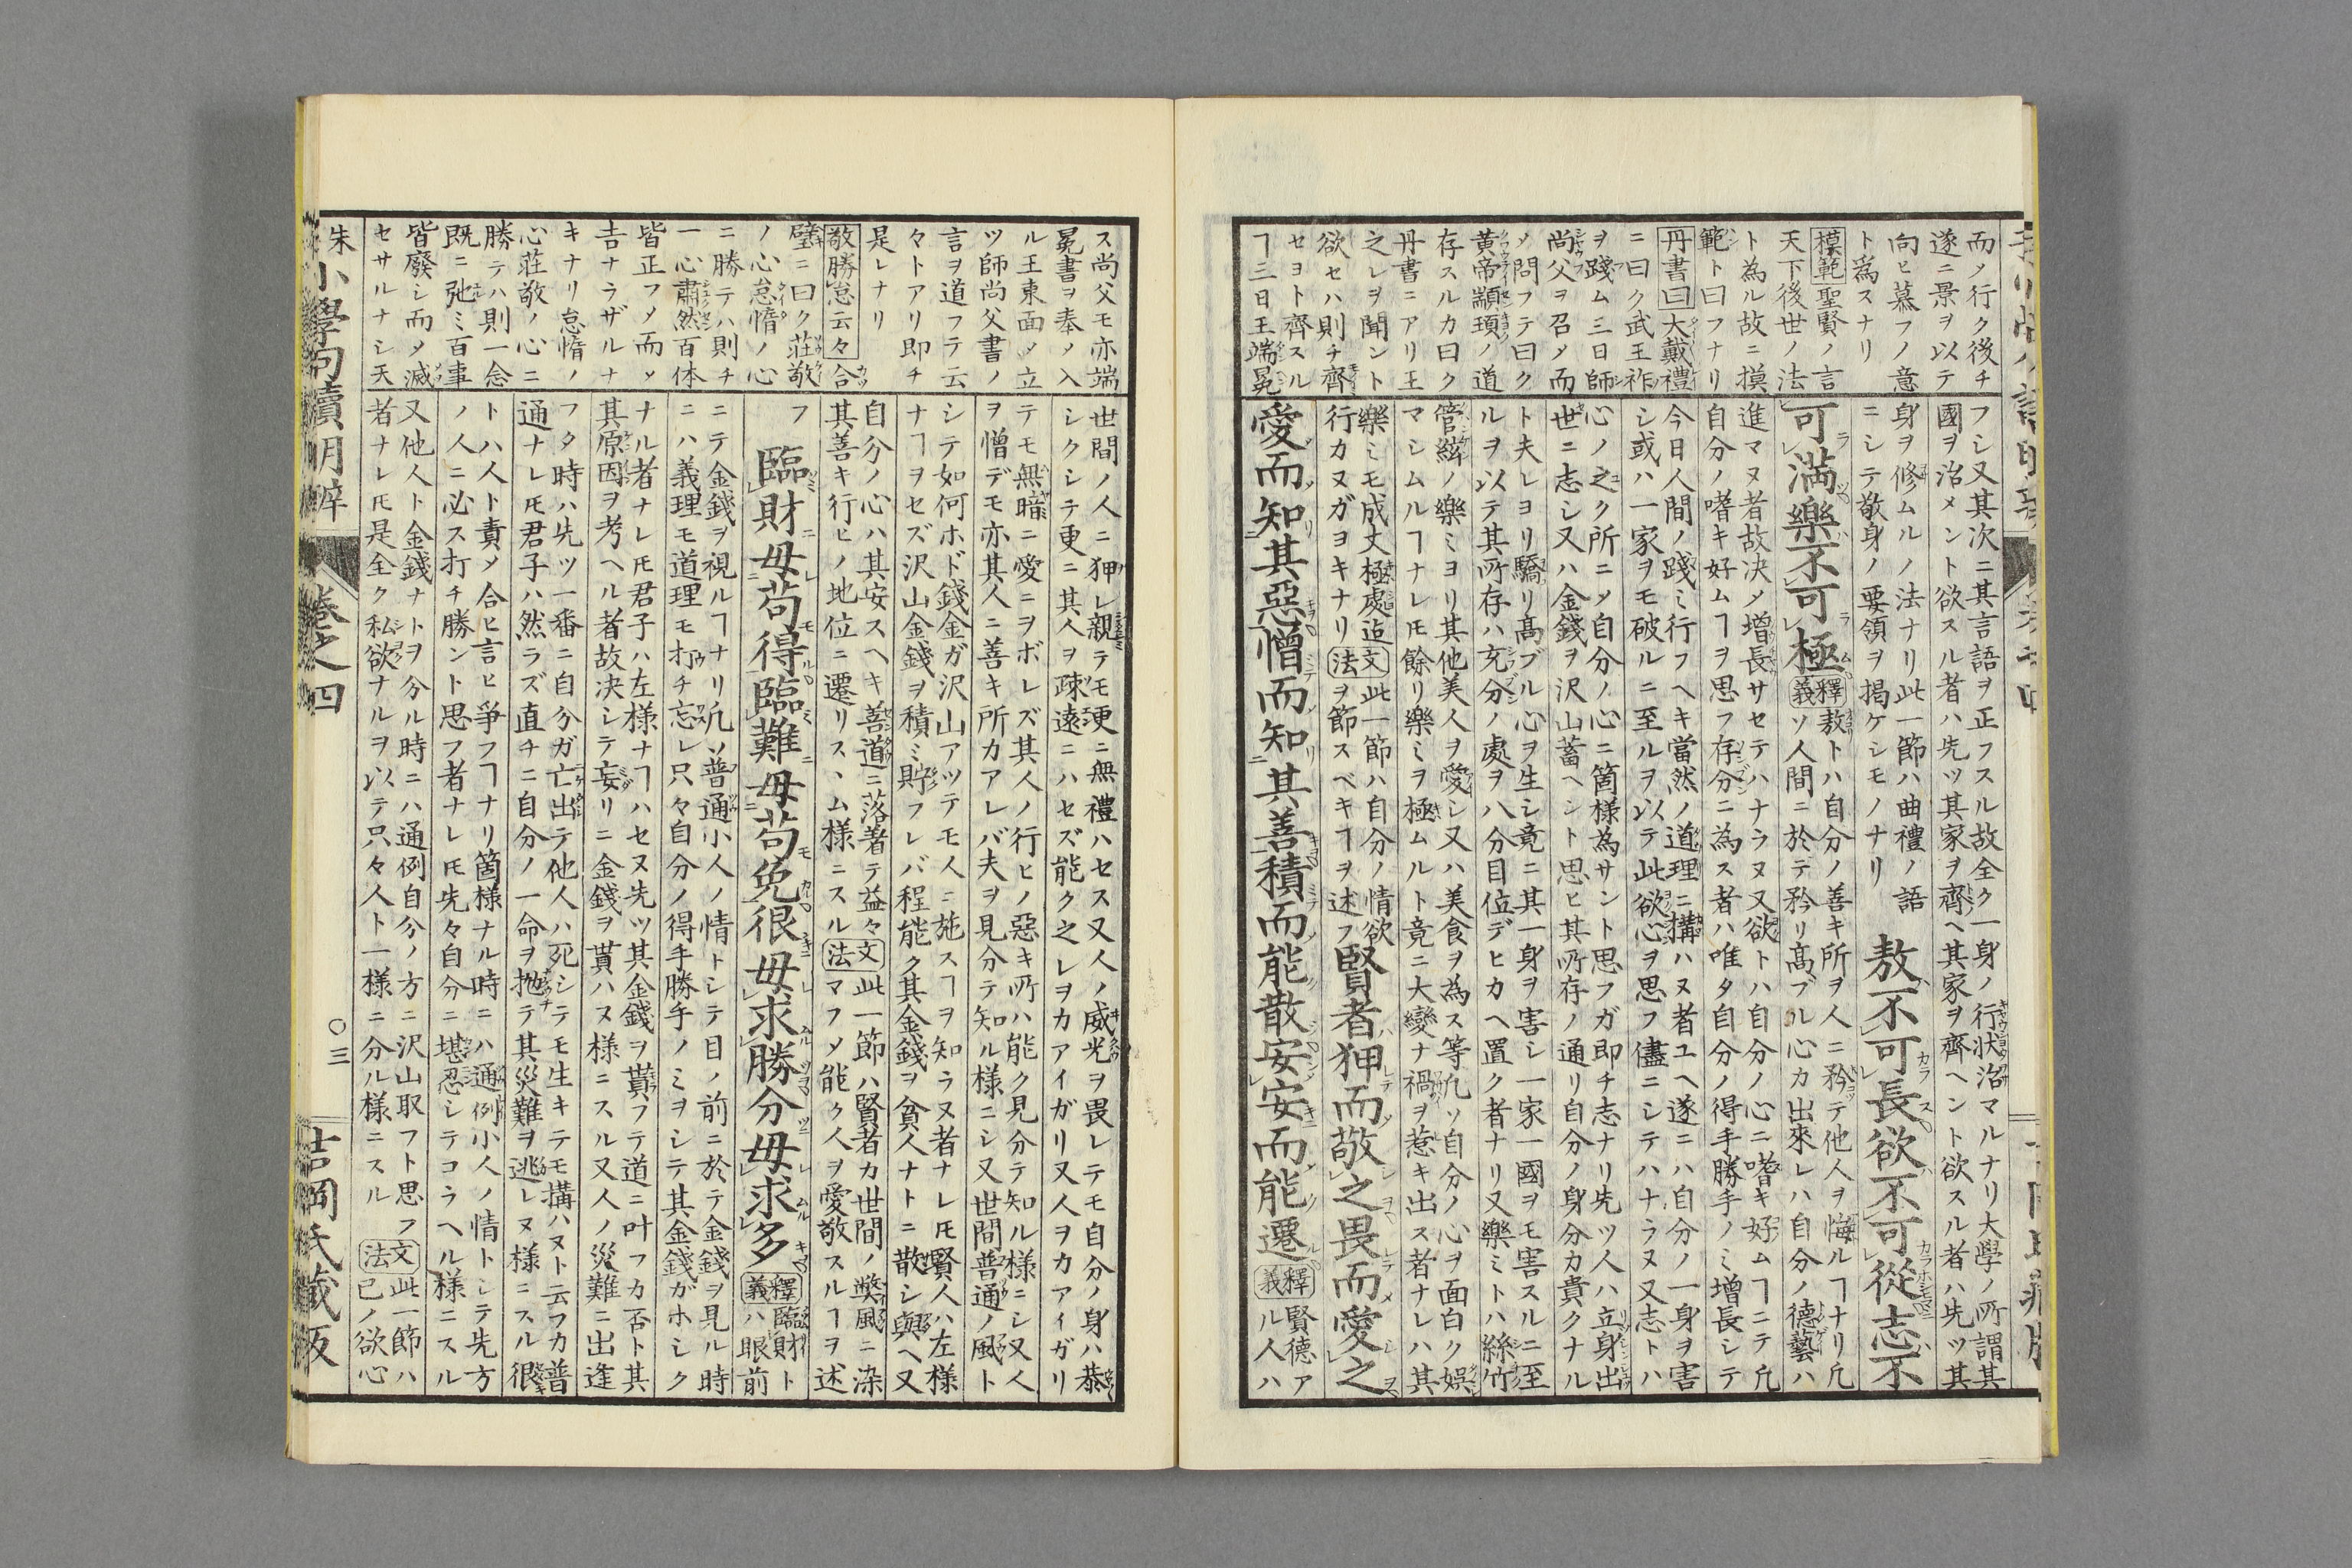 而ノ行ク後チ
遂ニ景ヲ以テ
向ヒ慕フノ意
ト爲スナリ
模範聖賢ノ言
天下後世ノ法
ト為ル故ニ摸
範ト曰フナリ
丹書曰大戴禮
ニ曰ク武王祚
ヲ踐ム三日師
尚父ヲ召〆而
〆問フテ曰ク
黄帝顓頊ノ道
存スルカ曰ク
丹書ニアリ王
之レヲ聞ント
欲セハ則チ齊
セヨト齊スル
ヿ三日王端冕
フシ又其次ニ其言語ヲ正フスル故全ク一身ノ行状治マルナリ大學ノ所謂其
國ヲ治メント欲スル者ハ先ツ其家ヲ齊ヘ其家ヲ齊ヘント欲スル者ハ先ツ其
身ヲ修ムルノ法ナリ此一節ハ曲禮ノ語
ニシテ敬身ノ要領ヲ掲ケシモノナリ
敖不可長欲不可從志不
可満樂不可極
釋義
敖トハ自分ノ善キ所ヲ人ニ矜テ他人ヲ悔ルヿナリ凢
ソ人間ニ於テ矜リ髙ブル心カ出來レハ自分ノ德藝ハ
進マヌ者故决〆増長サセテハナラヌ又欲トハ自分ノ心ニ嗜キ好ムヿニテ凢
自分ノ嗜キ好ムヿヲ思フ存分ニ為ス者ハ唯タ自分ノ得手勝手ノミ増長シテ
今日人間ノ踐ミ行フヘキ當然ノ道理ニ搆ハヌ者ユヘ遂ニハ自分ノ一身ヲ害
シ或ハ一家ヲモ破ルニ至ルヲ以テ此欲心ヲ思フ儘ニシテハナラヌ又志トハ
心ノ之ク所ニ〆自分ノ心ニ箇様為サント思フガ即チ志ナリ先ツ人ハ立身出
世ニ志シ又ハ金錢ヲ沢山蓄ヘシト思ヒ其所存ノ通リ自分ノ身分カ貴クナル
ト夫レヨリ驕リ髙ブル心ヲ生シ竟ニ其一身ヲ害シ一家一國ヲモ害スルニ至
ルヲ以テ其所存ハ充分ノ處ヲ八分目位デヒカヘ置ク者ナリ又樂ミトハ絲竹
管絃ノ樂ミヨリ其他美人ヲ愛シ又ハ美食ヲ為ス等凢ソ自分ノ心ヲ面白ク娯
マシムルヿナレ𪜈餘リ樂ミヲ極ムルト竟ニ大變ナ禍ヲ惹キ出ス者ナレハ其
樂ミモ成丈極處迠
行カヌガヨキナリ
文法
此一節ハ自分ノ情欲
ヲ節スベキヿヲ述フ
賢者狎而敬之畏而愛之
愛而知其惡憎而知其善積而能散安安而能遷
釋義
賢德ア
ル人ハ
ス尚父モ亦端
冕書ヲ奉〆入
ル王東面〆立
ツ師尚父書ノ
言ヲ道フテ云
々トアリ即チ
是レナリ
敬勝怠云々合
璧ニ曰ク莊敬
ノ心怠惰ノ心
ニ勝テハ則チ
一心肅然百体
皆正フ〆而〆
吉ナラザルナ
キナリ怠惰ノ
心莊敬ノ心ニ
勝テハ則一念
既ニ弛ミ百事
皆廢シ而〆滅
セサルナシ天
世間ノ人ニ狎レ親テモ更ニ無禮ハセス又人ノ威光ヲ畏レテモ自分ノ身ハ恭
シクシテ更ニ其人ヲ疎遠ニハセズ能ク之レヲカアイガリ又人ヲカアイガリ
テモ無暗ニ愛ニヲボレズ其人ノ行ヒノ惡キ所ハ能ク見分テ知ル様ニシ又人
ヲ憎デモ亦其人ニ善キ所カアレバ夫ヲ見分テ知ル様ニシ又世間普通ノ風ト
シテ如何ホド錢金ガ沢山アツテモ人ニ施スヿヲ知ラヌ者ナレ𪜈賢人ハ左様
ナヿヲセズ沢山金錢ヲ積ミ貯フレバ程能ク其金錢ヲ貧人ナトニ散シ與ヘ又
自分ノ心ハ其安スヘキ善道ニ落着テ益々
其善キ行ヒノ地位ニ遷リスヽム様ニスル
文法
此一節ハ賢者カ世間ノ弊風ニ染
マフ〆能ク人ヲ愛敬スルヿヲ述
フ
臨財毋苟得臨難毋苟免很毋求勝分毋求多
釋義
臨財ト
ハ眼前
ニテ金錢ヲ視ルヿナリ凢ソ普通小人ノ情トシテ目ノ前ニ於テ金錢ヲ見ル時
ニハ義理モ道理モ打チ忘レ只々自分ノ得手勝手ノミヲシテ其金錢ガホシク
ナル者ナレ𪜈君子ハ左様ナヿハセヌ先ツ其金錢ヲ貰フテ道ニ叶フカ否ト其
其原因ヲ考ヘル者故决シテ妄リニ金錢ヲ貰ハヌ様ニスル又人ノ災難ニ出逢
フタ時ハ先ツ一番ニ自分ガ亡出テ他人ハ死シテモ生キテモ搆ハヌト云フカ普
通ナレ𪜈君子ハ然ラズ直チニ自分ノ一命ヲ抛テ其災難ヲ逃レヌ様ニスル很
トハ人ト責〆合ヒ言ヒ爭フヿナリ箇様ナル時ニハ通例小人ノ情トシテ先方
ノ人ニ必ス打チ勝ント思フ者ナレ𪜈先々自分ニ堪忍シテコラヘル様ニスル
又他人ト金錢ナトヲ分ル時ニハ通例自分ノ方ニ沢山取フト思フ
者ナレ𪜈是全ク私欲ナルヲ以テ只々人ト一様ニ分ル様ニスル
文法
此一節ハ
已ノ欲心
朱 小學句讀明辞 卷之四 ○三 吉岡氏藏板